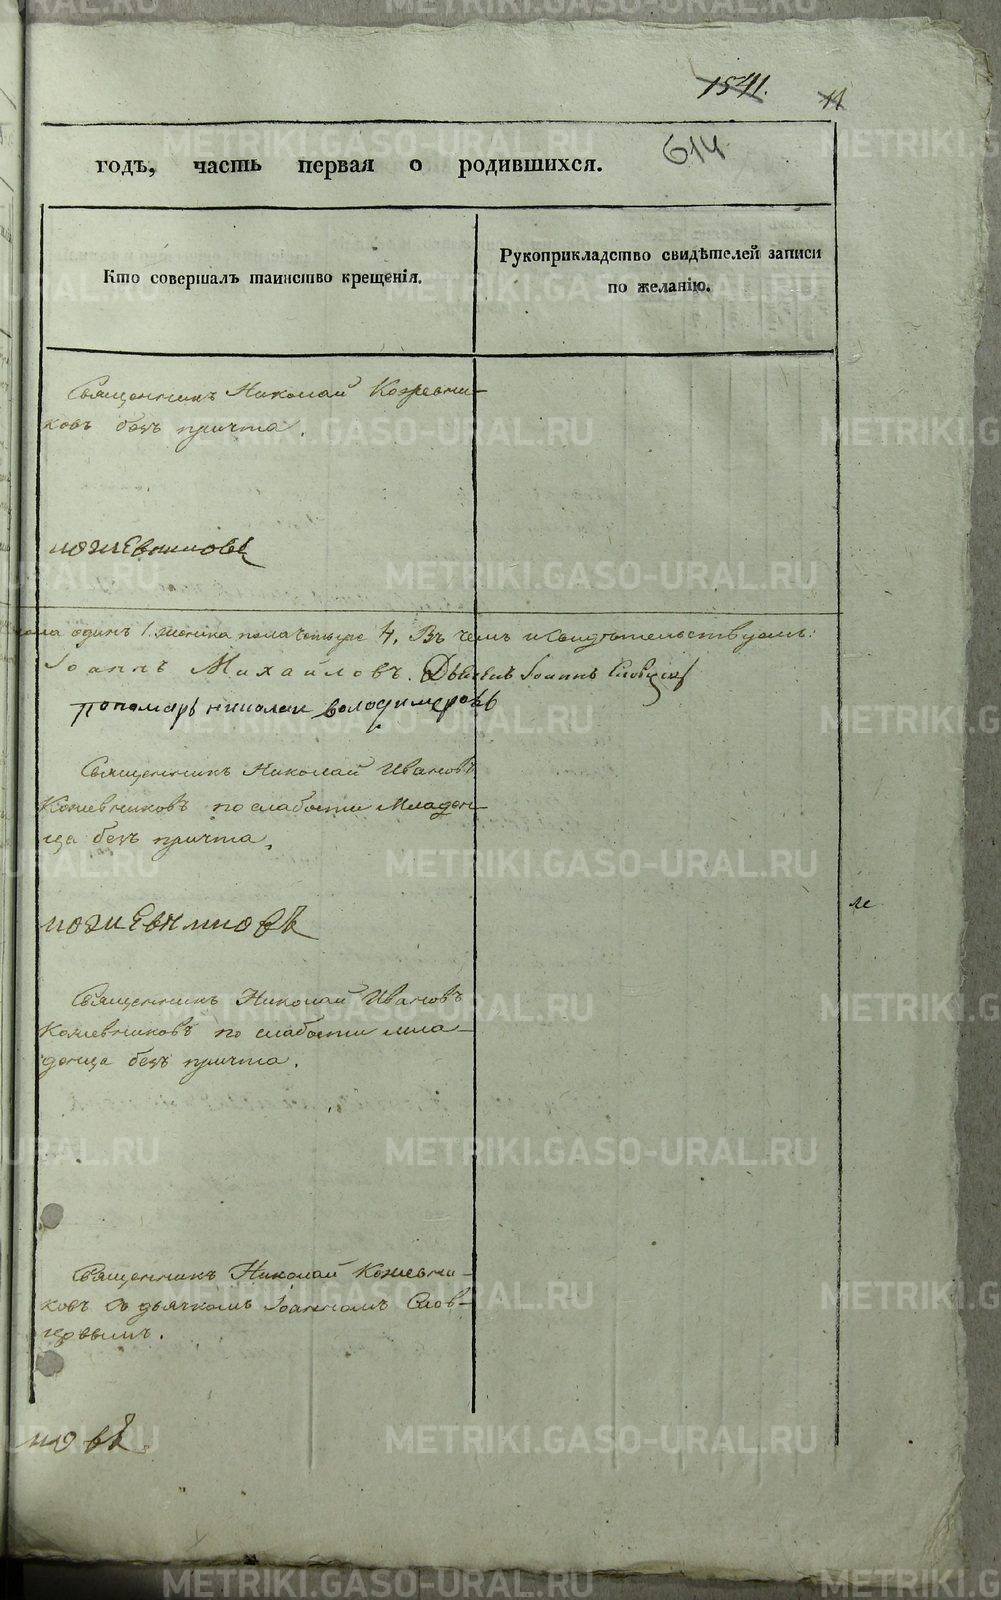 1541.
11
614
годъ, часть первая о родившихся.
Кто совершалъ таинство крещенія.
Рукоприкладство свидѣтелей записи
по желанію.
Священникъ Николай Кожевни-
ковъ безъ причта.
кожевниковъ
пола одинъ 1. женска пола четыре 4. Въ чемъ и свидѣтельствуемъ:
Іоаннъ Михайловъ. Дьячекъ Іоаннъ Словцовъ
Пономарь николаи володимеровъ
Священникъ Николай Ивановъ
Кожевниковъ по слабости Младен-
ца безъ причта.
кожевниковъ
Священникъ Николай Ивановъ
Кожевниковъ по слабости мла-
денца безъ причта.
Священникъ Николай Кожевни-
ковъ съ дьячкомъ Іоанномъ Слов-
цовымъ.
ковъ
METRIKI.GASO-URAL.RU